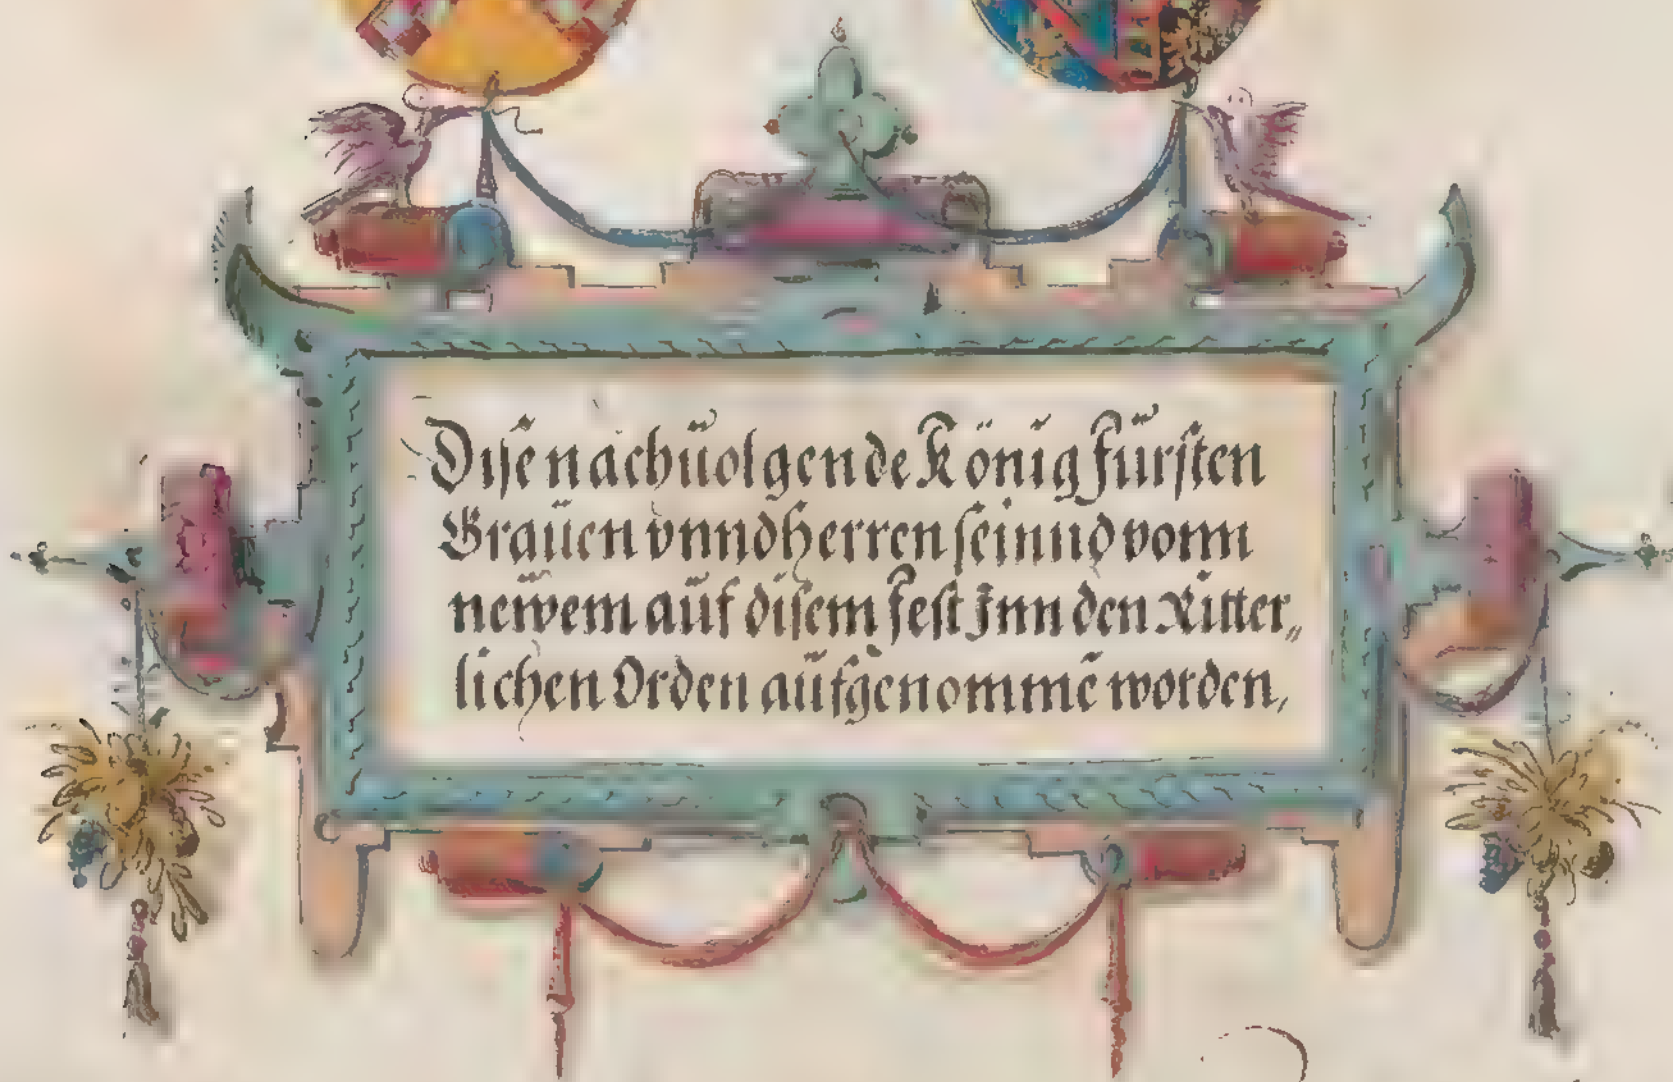 Dise nachuolgende König Fürsten
Grauen vnnd Herren seinnd vonn
newem auf disem Fest Inn den Ritter„
lichen Orden aufgenommē worden,